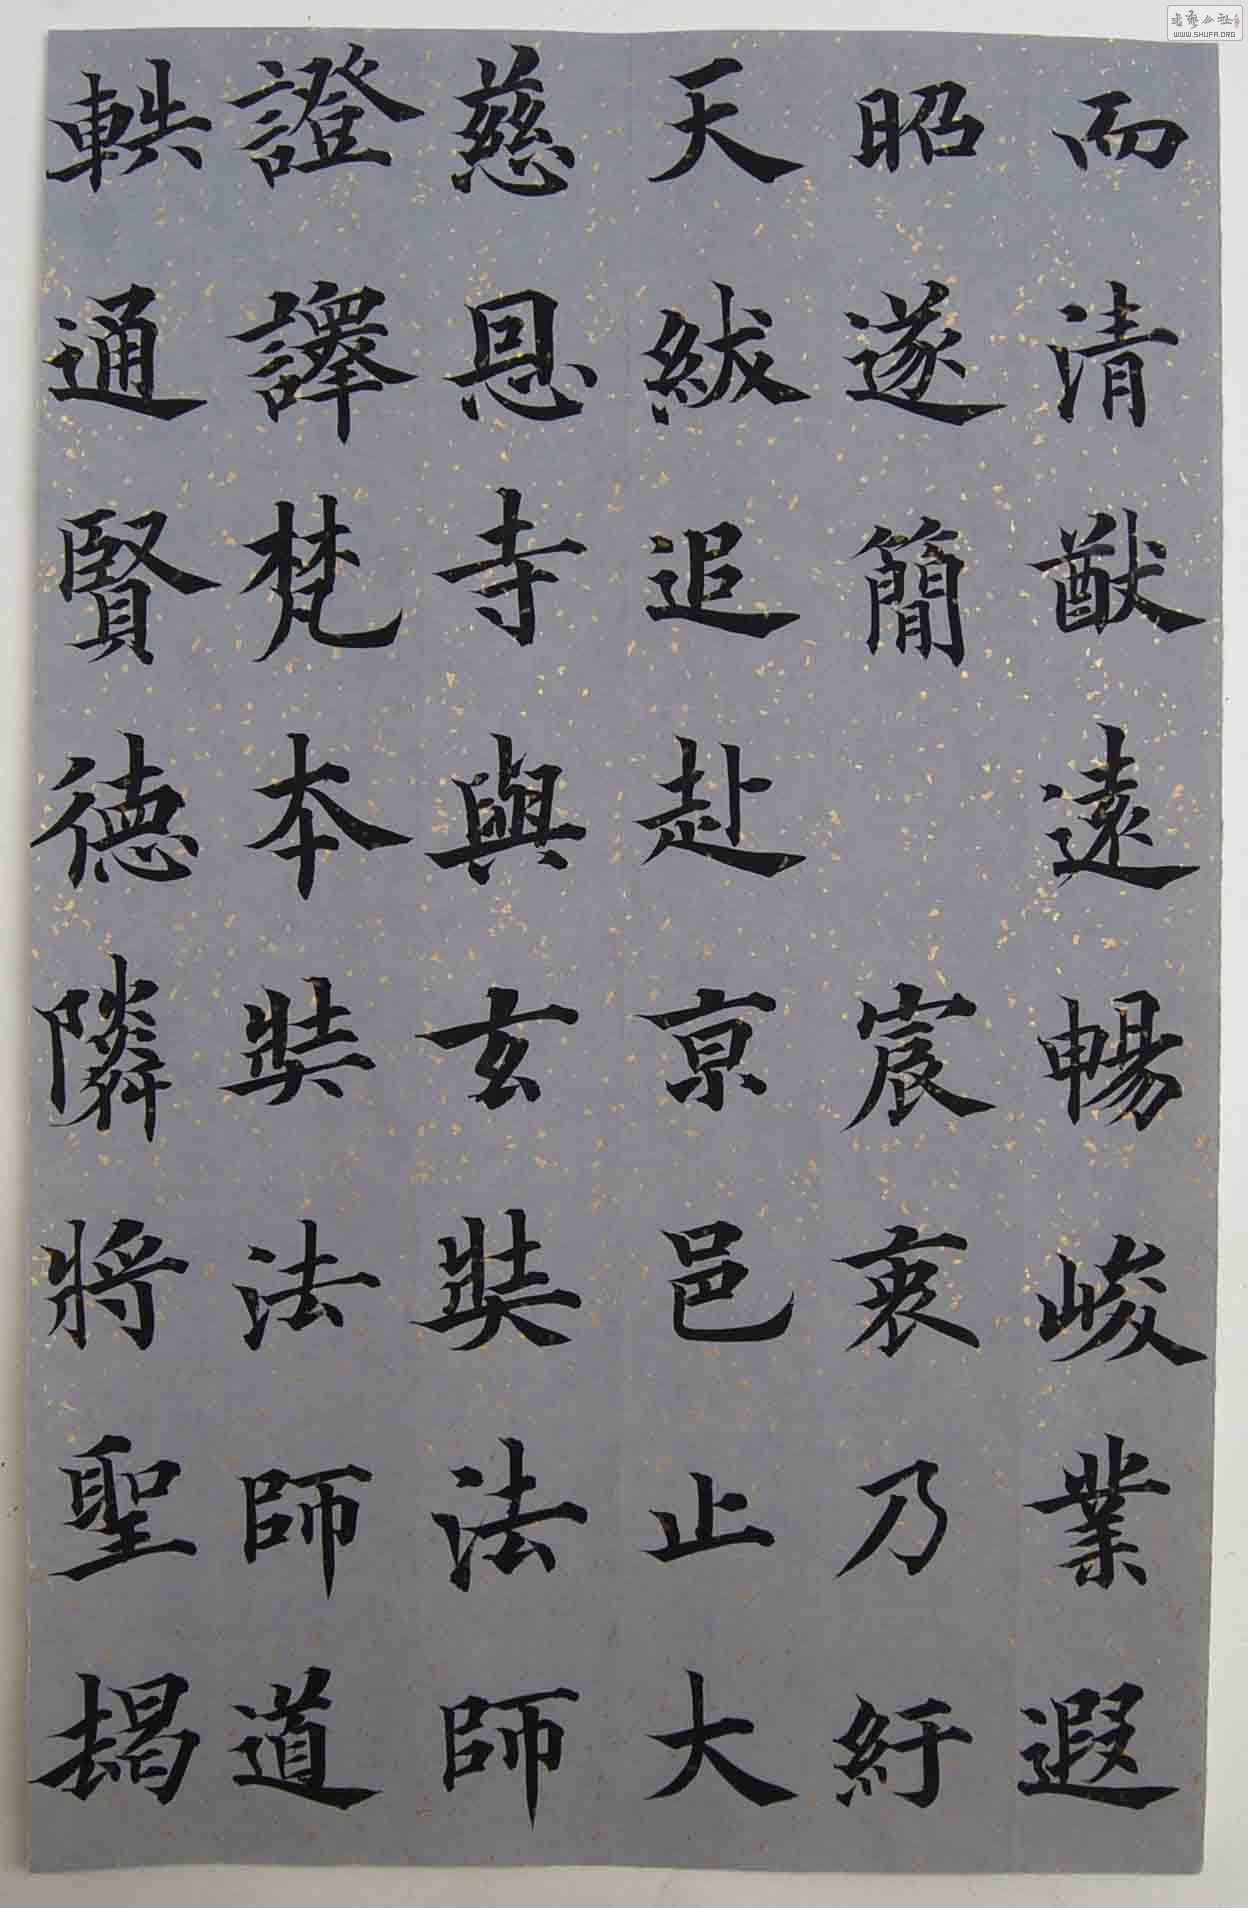 而清猷遠暢峻業遐
昭遂簡 宸衷乃紆
天紱追赴京邑止大
慈恩寺與玄奘法師
證譯梵本奘法師道
軼通賢德隣將聖揭
書藝公社
WWW.SHUFA.ORG